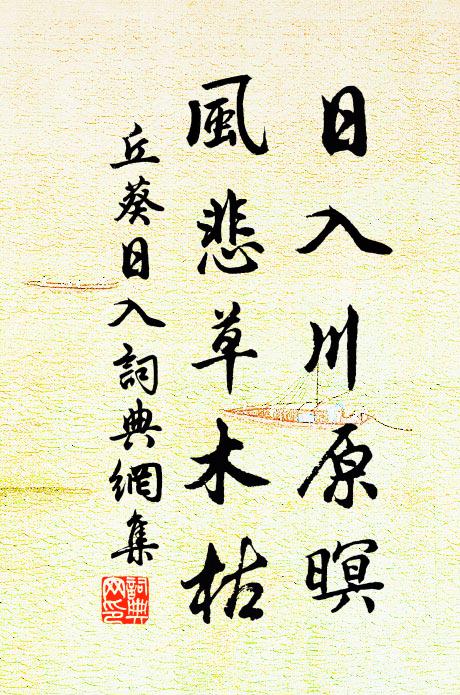 日入川原暝
風悲草木枯
丘葵日入詞典網集
詞典
网印